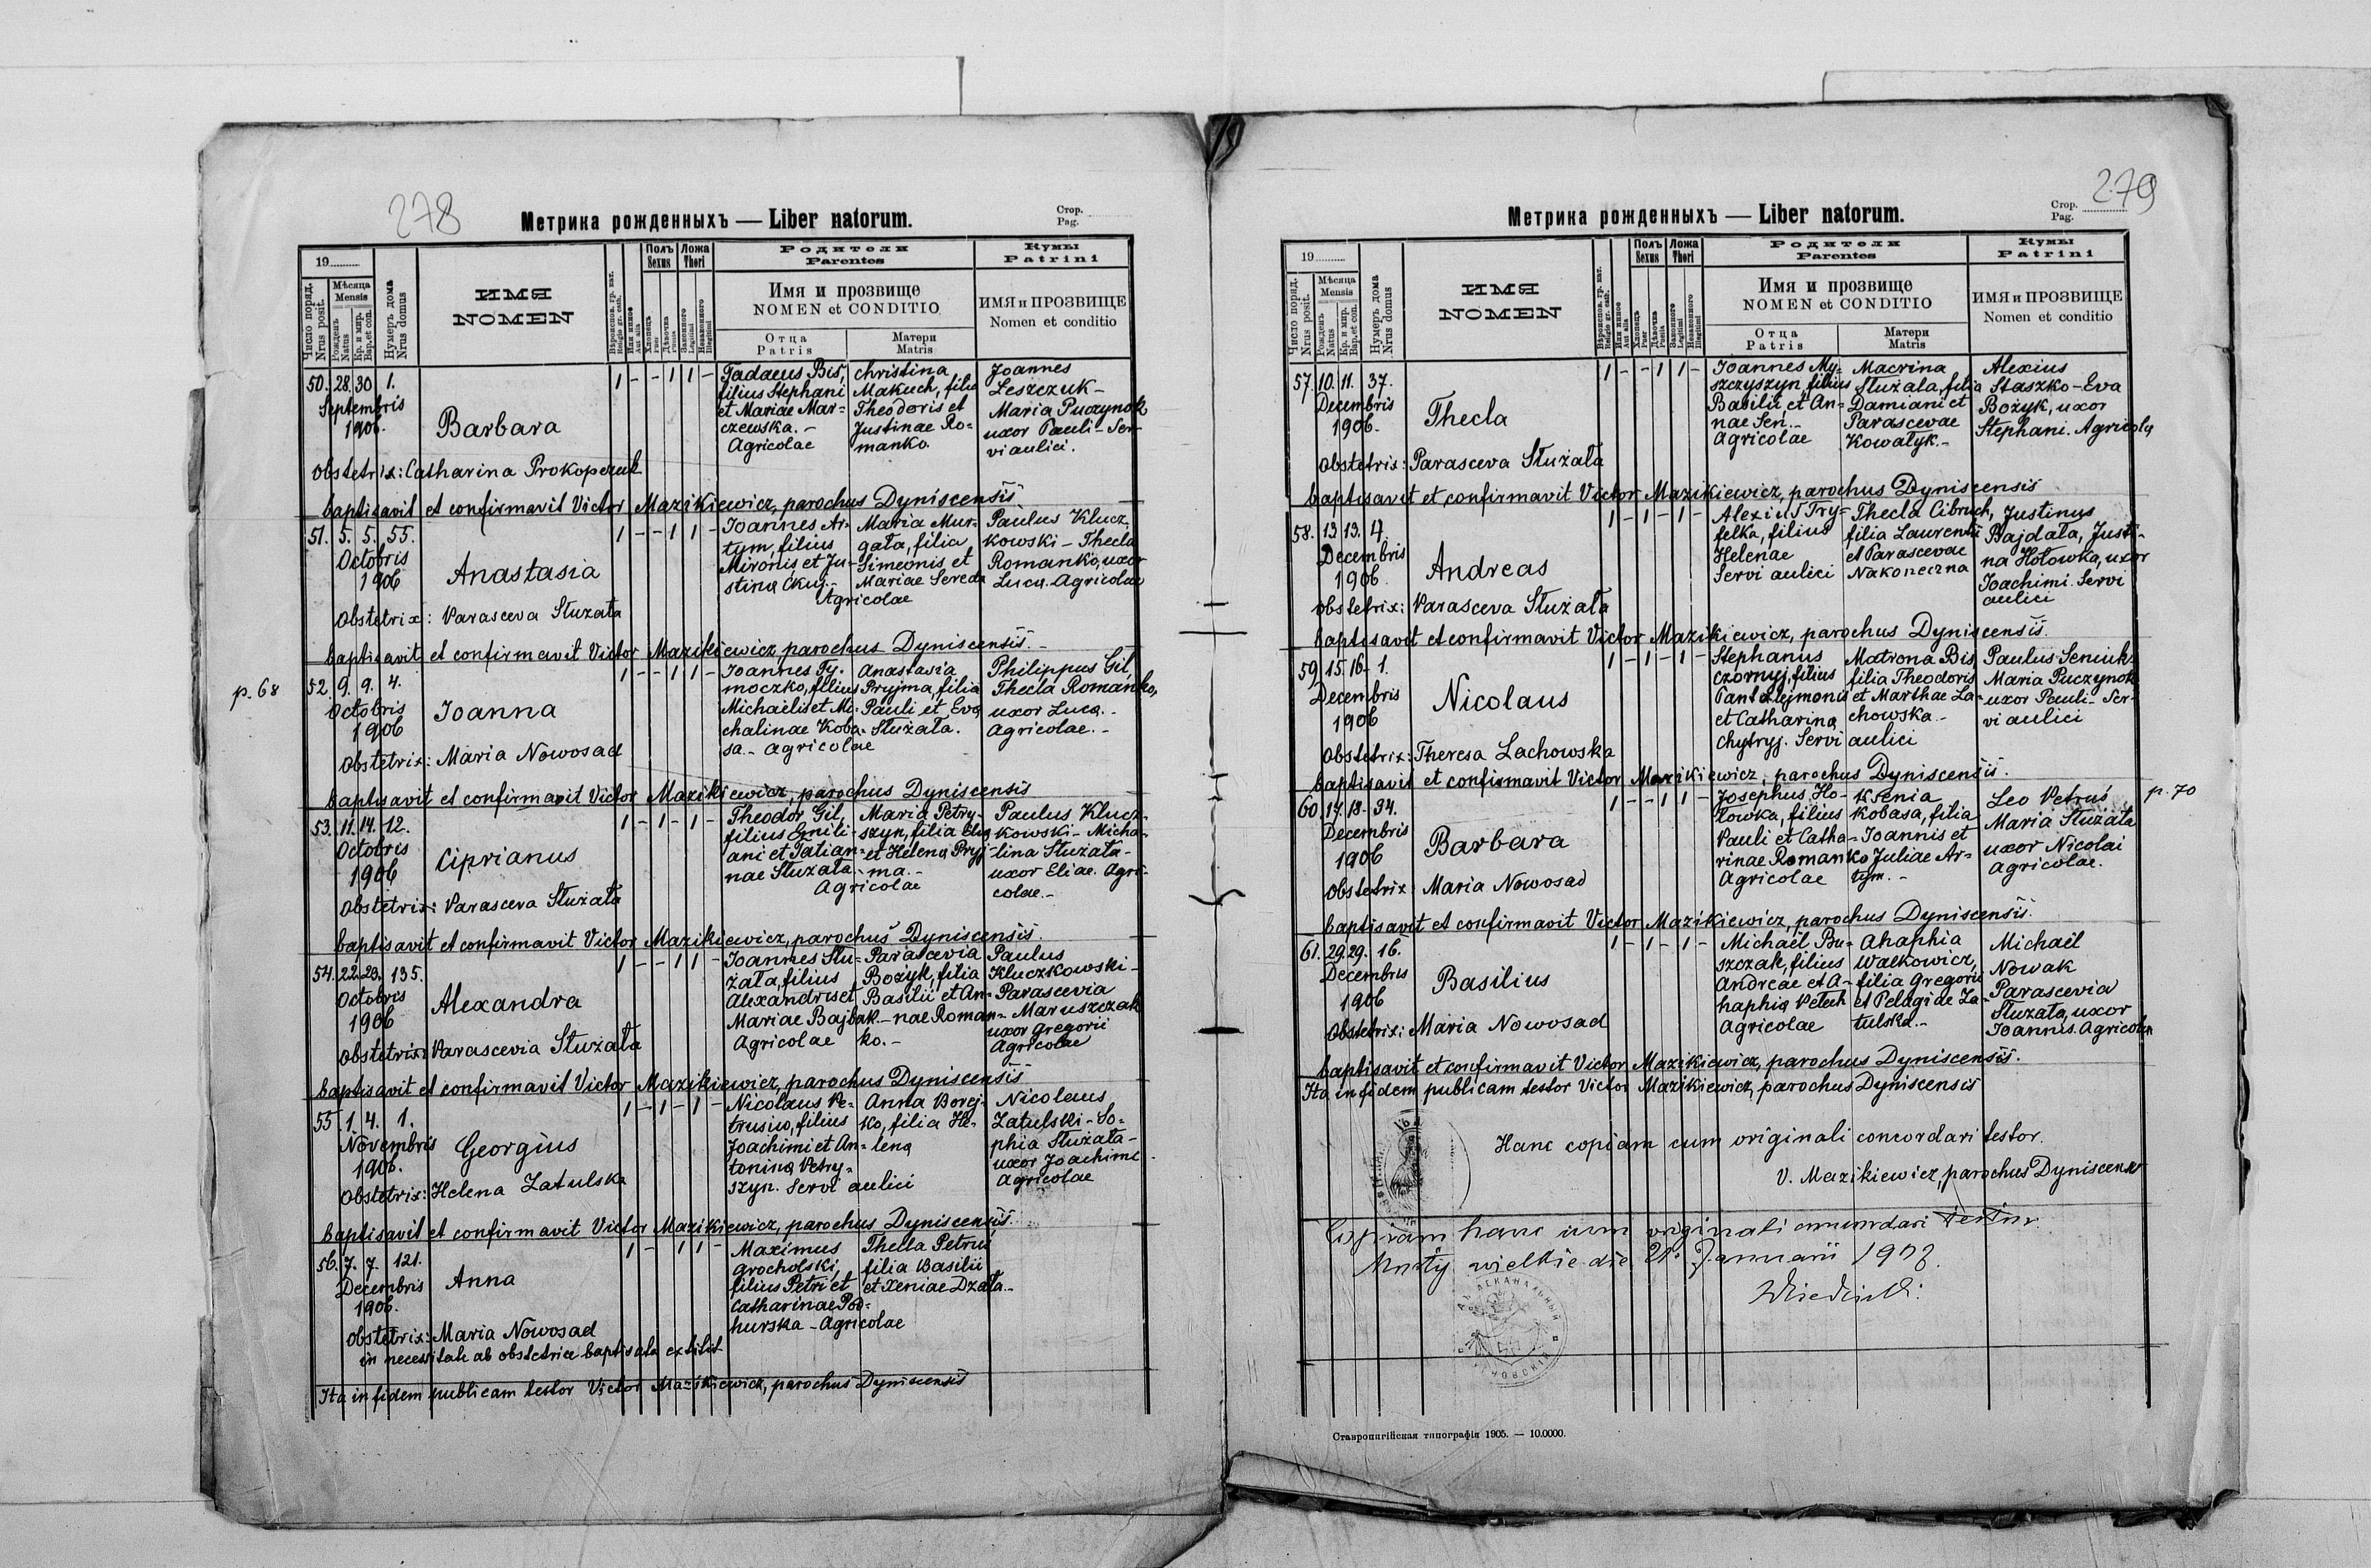 278
Метрика рожденныхъ — Liber natorum.
Стор.
Pag.
19
Число поряд.
Nrus posit.
Мѣсяца
Mensis
Рожденъ
Natus
Кр. и мир.
Bap. et con.
Нумеръ дома
Nrus domus
ИМЯ
NOMEN
Вѣроиспов. гр. кат.
Religio gr. cath.
Или иное
Aut alia
Полъ
Sexus
Хлопець
Puer
Дѣвочка
Puella
Ложа
Thori
Законного
Legitimi
Незаконного
Illegitimi
Родители
Parentes
Имя и прозвище
NOMEN et CONDITIO
Отца
Patris
Матери
Matris
Кумы
Patrini
ИМЯ и ПРОЗВИЩЕ
Nomen et conditio
50. 28. 30 1.
Septembris
1906.
Barbara
1 - - 1 1 -
Tadaeus Bis,
filius Stephani
et Mariae Mar=
czewska. -
Agricolae
Christina
Makuch, filia
Theodoris et
Justinae Ro=
manko.
Joannes
Leszczuk -
Maria Puczynok
uxor Pauli - Ser-
vi aulici.
Obstetrix: Catharina Prokopczuk
baptisavit et confirmavit Victor Mazikiewicz, parochus Dyniscensis
51. 5. 5. 55.
Octobris
1906
Anastasia
1 - - 1 1 -
Joannes Ar-
tym, filius
Mironis et Ju-
stina Ckuj. -
Agricolae
Maria Mur-
gała, filia
Simeonis et
Mariae Sereda
Paulus Klucz-
kowski - Thecla
Romanko, uxor
Luca. Agricolae
Obstetrix: Parasceva Służała
baptisavit et confirmavit Victor Mazikiewicz parochus Dyniscensis. -
p. 68
52. 9. 9. 4.
Octobris
1906
Joanna
1 - - 1 1 -
Joannes Ty-
moczko, filius
Michaelis et Mi-
chalinae Koba-
sa. - Agricolae
Anastasia
Pryjma, filia
Pauli et Eva
Służała.
Philippus Gil,
Thecla Romanko,
uxor Luca. -
Agricolae. -
Obstetrix: Maria Nowosad
baptisavit et confirmavit Victor Mazikiewicz, parochus Dyniscensis
53. 11. 14. 12.
Octobris
1906
Ciprianus
1 - 1 - 1 -
Theodor Gil,
filius Emili-
ani et Tatian-
nae Służała -
Agricolae
Maria Petry-
szyn, filia Elia
et Helena Pryj
ma. -
Paulus Klucz-
kowski - Micha-
lina Służała -
uxor Eliae. Agri-
colae. -
Obstetrix: Parasceva Służała
baptisavit et confirmavit Victor Mazikiewicz, parochus Dyniscensis
54. 22. 23. 135.
Octobris
1906
Alexandra
1 - - 1 1 -
Joannes Słu-
żała, filius
Alexandris et
Mariae Bajbak. -
Agricolae
Parascevia
Bożyk, filia
Basilii et An-
nae Roman-
ko. -
Paulus
Kluczkowski -
Parascevia
Maruszczak
uxor Gregorii
Agricolae
Obstetrix: Parascevia Służała
baptisavit et confirmavit Victor Mazikiewicz, parochus Dyniscensis
55. 1. 4. 1.
Novembris
1906.
Georgius
1 - 1 - 1 -
Nicolaus Pe-
trusiw, filius
Joachimi et An-
tonina Petry-
szyn. Servi aulici
Anna Borej-
ko, filia He-
lena
Nicolaus
Zatulski - So-
phia Służała -
uxor Joachimi
Agricolae
Obstetrix: Helena Zatulska
baptisavit et confirmavit Victor Mazikiewicz, parochus Dyniscensis.
56. 7. 7. 121.
Decembris
1906.
Anna
1 - 1 1 -
Maximus
Grocholski,
filius Petri et
Catharinae Pod-
hurska - Agricolae
Thecla Petruś
filia Basilii
et Xeniae Dzała. -
Obstetrix: Maria Nowosad
in necessitate ab obstetrice baptisata extitit
Ita in fidem publicam testor Victor Mazikiewicz, parochus Dyniscensis
279
Метрика рожденныхъ — Liber natorum.
Стор.
Pag.
19
Число поряд.
Nrus posit.
Мѣсяца
Mensis
Рожденъ
Natus
Кр. и мир.
Bap. et con.
Нумеръ дома
Nrus domus
ИМЯ
NOMEN
Вѣроиспов. гр. кат.
Religio gr. cath.
Или иное
Aut alia
Полъ
Sexus
Хлопець
Puer
Дѣвочка
Puella
Ложа
Thori
Законного
Legitimi
Незаконного
Illegitimi
Родители
Parentes
Имя и прозвище
NOMEN et CONDITIO
Отца
Patris
Матери
Matris
Кумы
Patrini
ИМЯ и ПРОЗВИЩЕ
Nomen et conditio
57. 10. 11. 37.
Decembris
1906.
Thecla
1 - - 1 1 -
Joannes My-
szczyszyn, filius
Basilii et An-
nae Sen. -
Agricolae
Macrina
Służala, filia
Damiani et
Parascevae
Kowałyk. -
Alexius
Staszko - Eva
Bożyk, uxor
Stephani. Agricolae
Obstetrix: Parasceva Służała
baptisavit et confirmavit Victor Mazikiewicz, parochus Dyniscensis
58. 13 13. 4.
Decembris
1906.
Andreas
1 - 1 - 1 -
Alexius Try-
felka, filius
Helenae
Servi aulici
Thecla Cibruch,
filia Laurentii
et Parascevae
Nakoneczna
Justinus
Bajdała, Justi-
na Hołowka, uxor
Joachimi. Servi
aulici
Obstetrix: Parasceva Służała
baptisavit et confirmavit Victor Mazikiewicz, parochus Dyniscensis.
59. 15. 16 - 1.
Decembris
1906
Nicolaus
1 - 1 - 1 -
Stephanus
Czornyj, filius
Pantalejmonis
et Catharina
Chytryj. Servi aulici
Matrona Bis
filia Theodoris
et Marthae La-
chowska. -
Paulus Seniuk
Maria Puczynok
uxor Pauli - Ser-
vi aulici
Obstetrix: Theresa Lachowska
baptisavit et confirmavit Victor Mazikiewicz, parochus Dyniscensis.
p. 70
60. 17. 18. 94.
Decembris
1906
Barbara
1 - - 1 1 -
Josephus Ho-
łowka, filius
Pauli et Catha-
rinae Romanko
Agricolae
Ksenia
Kobasa, filia
Joannis et
Juliae Ar-
tym. -
Leo Petruś
Maria Służała
uxor Nicolai
Agricolae.
Obstetrix: Maria Nowosad
baptisavit et confirmavit Victor Mazikiewicz, parochus Dyniscensis.
61. 29. 29. 16.
Decembris
1906
Basilius
1 - 1 - 1 -
Michaël Bu-
szczak, filius
Andreae et A-
haphia Petech
Agricolae
Ahaphia
Wałkowicz,
filia Gregorii
et Pelagiae Za-
tulska. -
Michaël
Nowak
Parascevia
Służała, uxor
Joannis. Agricolae
Obstetrix: Maria Nowosad
baptisavit et confirmavit Victor Mazikiewicz, parochus Dyniscensis.
Ita in fidem publicam testor Victor Mazikiewicz, parochus Dyniscensis
Hanc copiam cum originali concordari testor.
V. Mazikiewicz, parochus Dyniscensis
Copiam hanc cum originali concordari testor.
Mosty wielkie die 21. Januarii 1907.
Ставропигійская типографія 1905. — 10.0000.